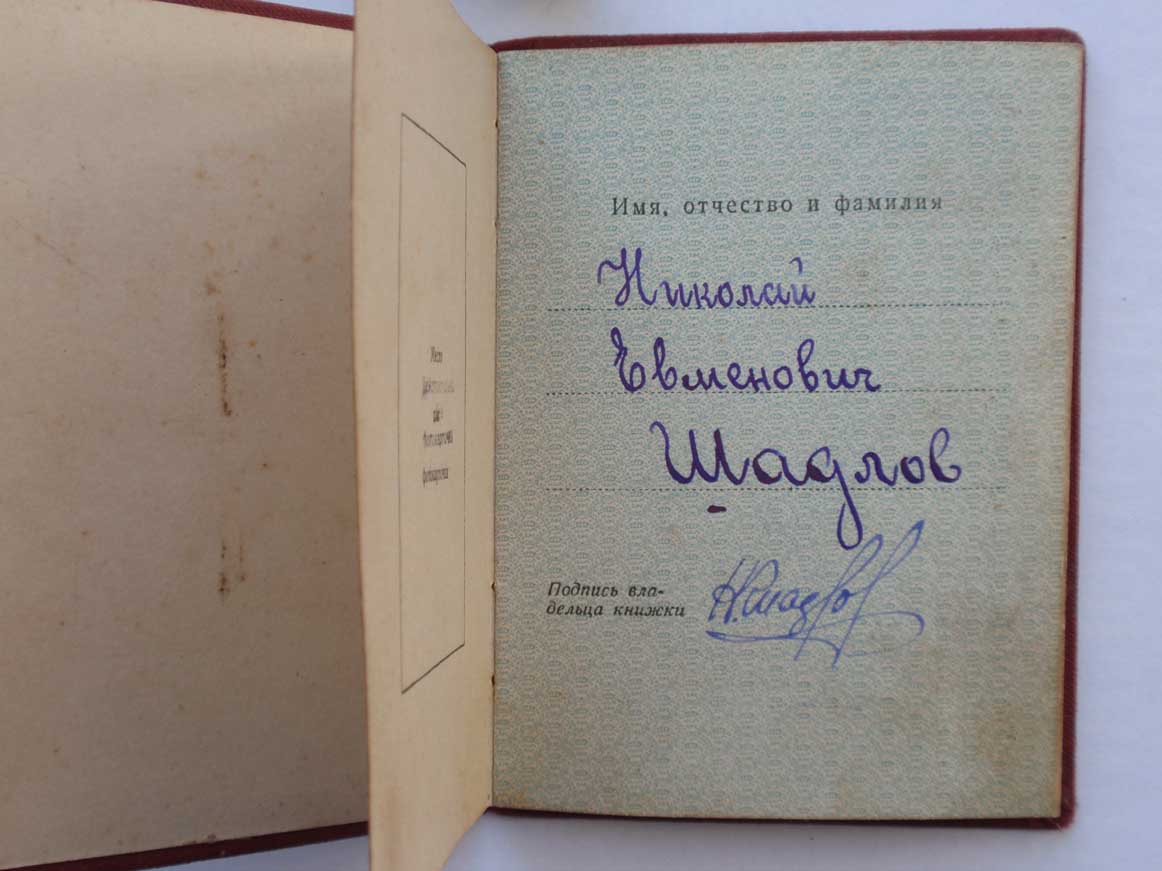 Место
для
фотокарточки
Имя, отчество и фамилия
Николай
Евменович
Шадлов
Подпись вла-
дельца книжки
Н.Шадлов